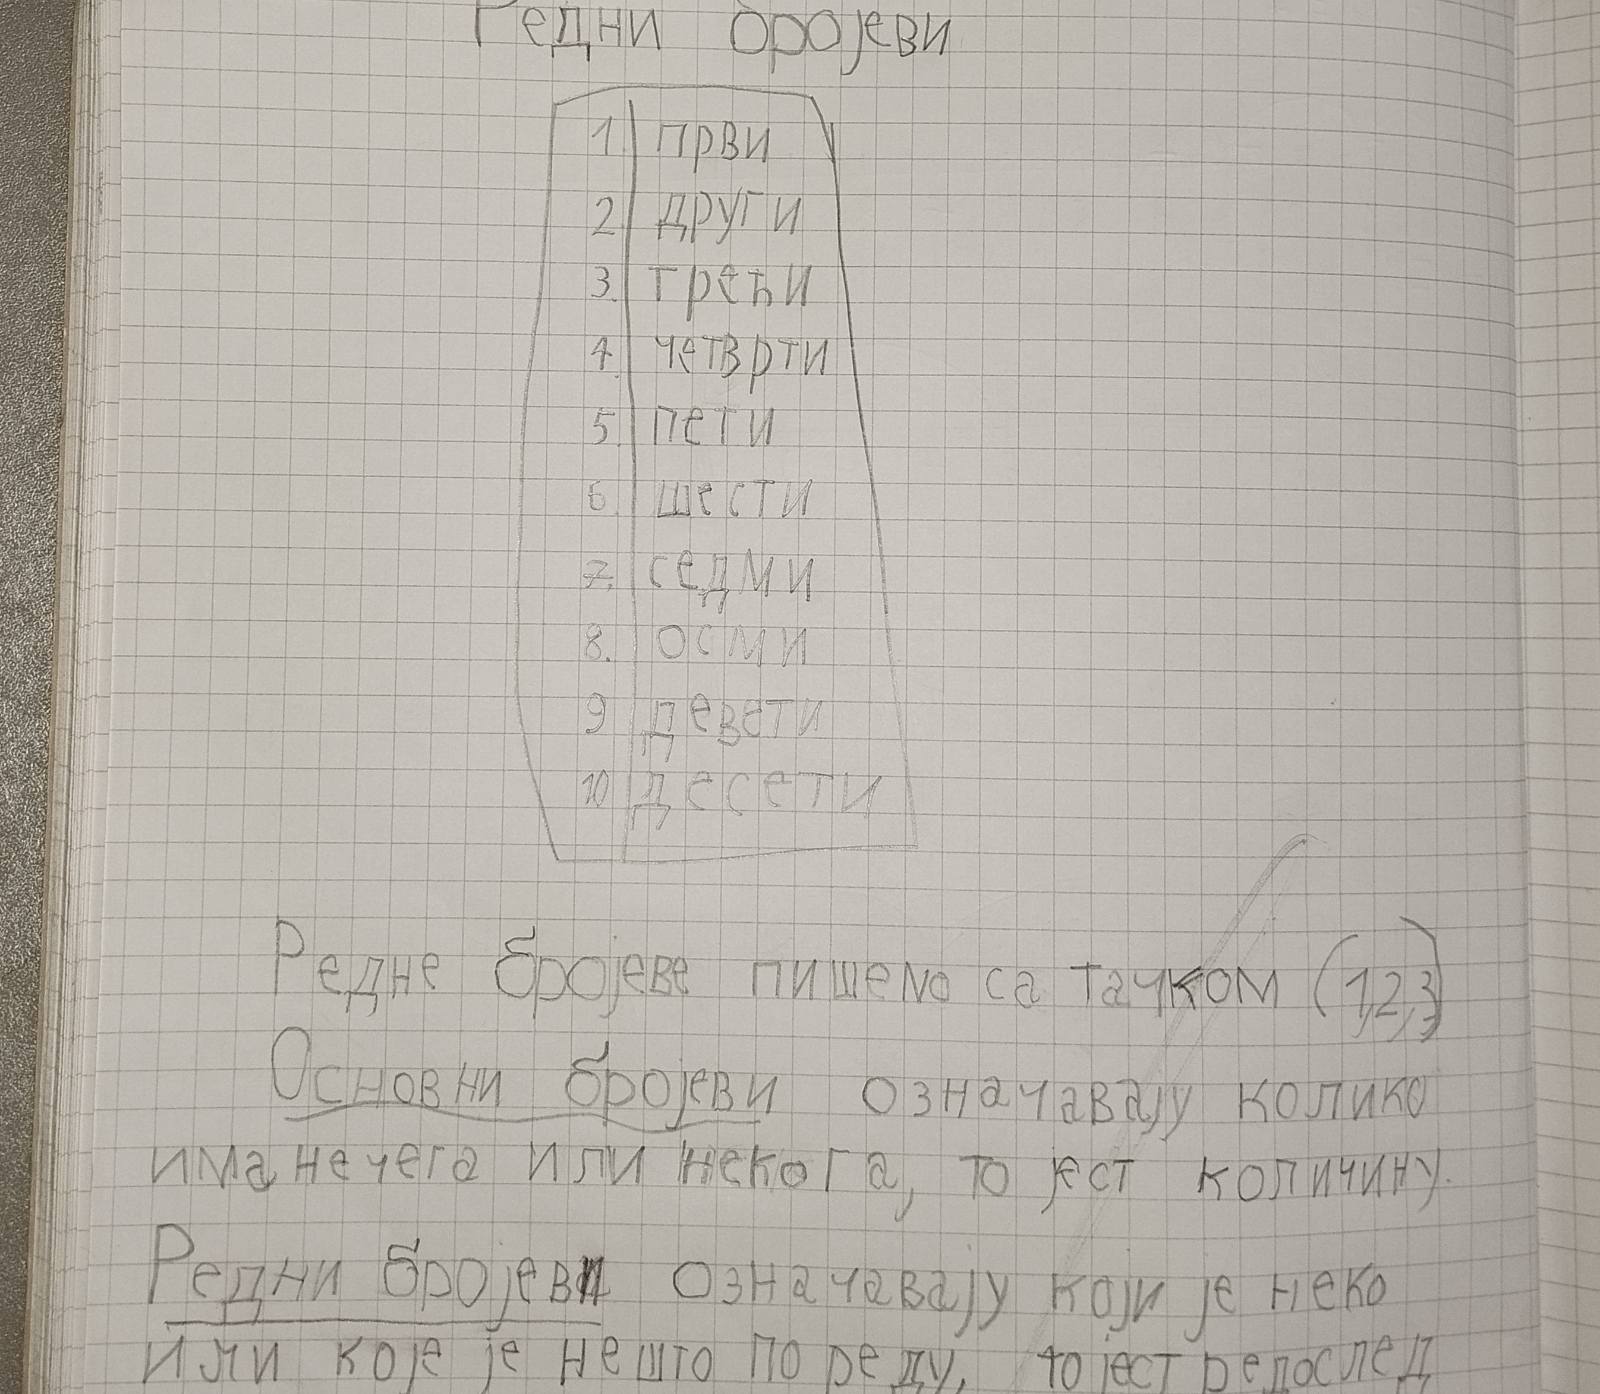 Редни бројеви
1. први
2 други
3. трећи
4. четврти
5. пети
6 шести
7. седми
8. осми
9 девети
10 десети
Редне бројеве пишемо са тачком (1,2,3)
Основни бројеви означавају колико
има нечега или некога, то јест количину.
Редни бројеви означавају који је неко
или које је нешто по реду, то јест редослед